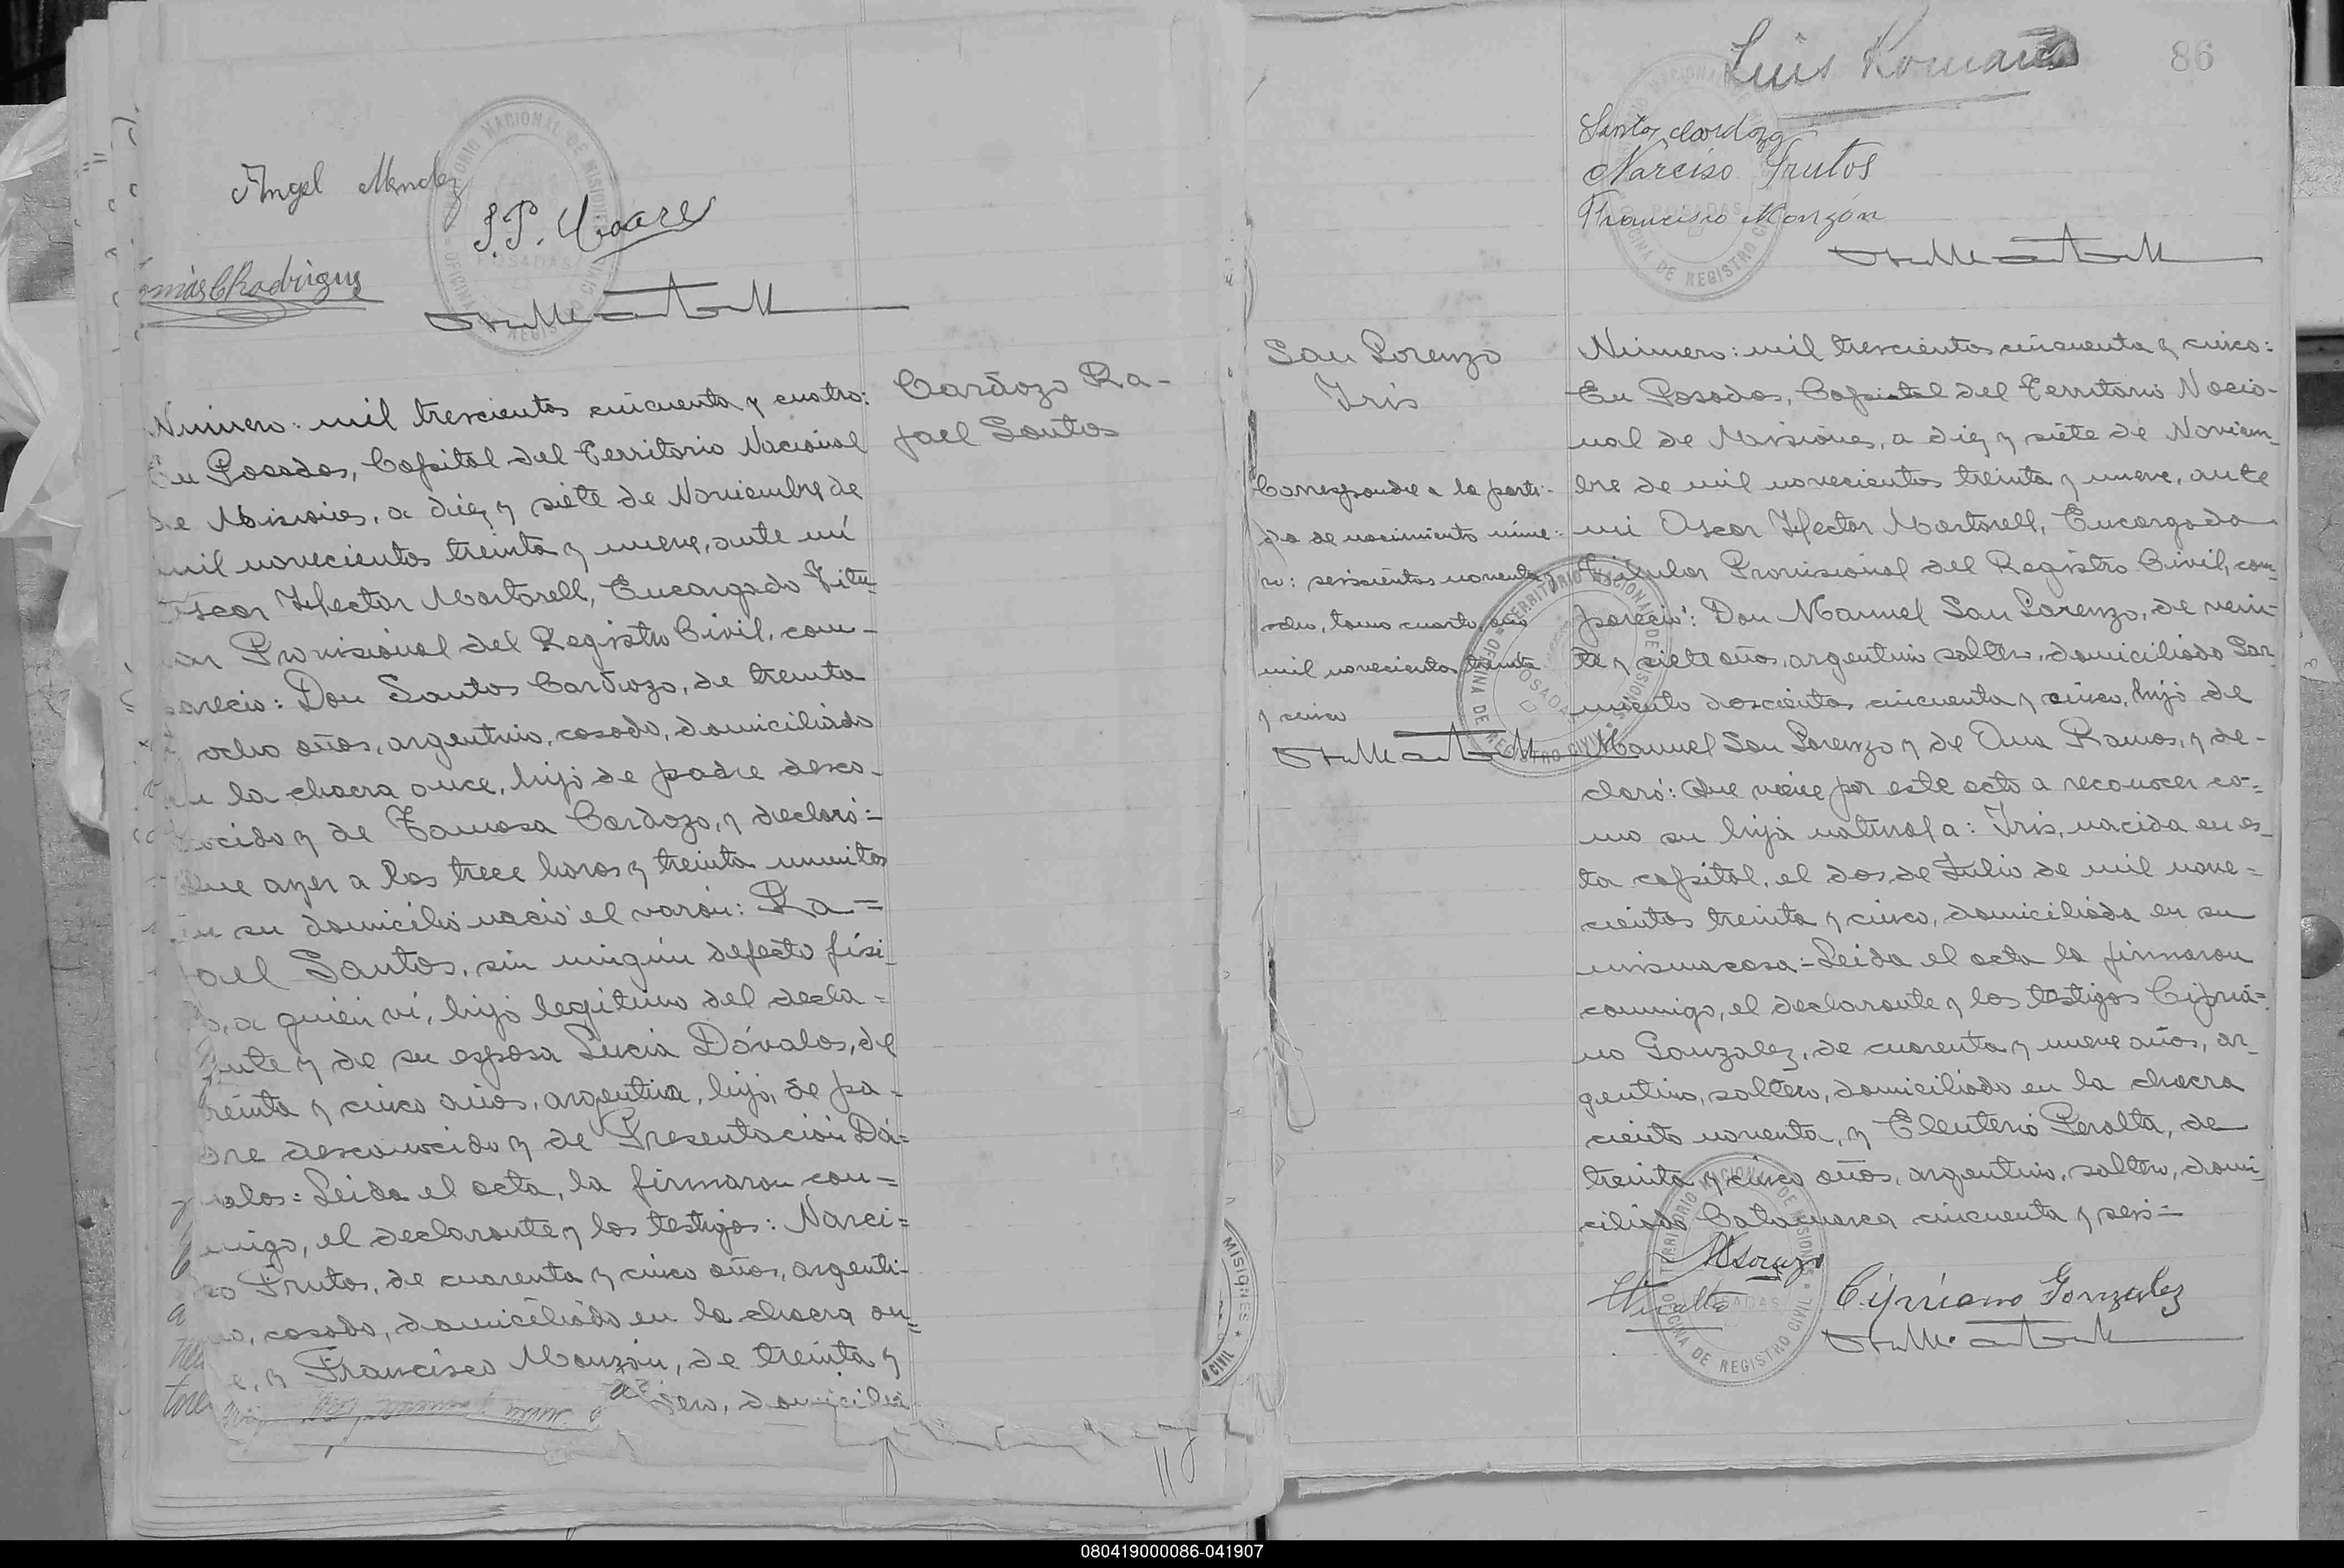 Angel Mendez
TERRITORIO NACIONAL DE MISIONES
POSADAS
OFICINA DE REGISTRO CIVIL
Número: mil trescientos cincuenta y cuatro:
En Posadas, Capital del Territorio Nacional
de Misiones, a diez y siete de Noviembre de
mil novecientos treinta y nueve, ante mí
Oscar Hector Martorell, Encargado Titu-
lar Provisional del Registro Civil, com-
pareció: Don Santos Cardozo, de treinta
ocho años, argentino, casado, domiciliado
la chacra once, hijo de padre desco-
nocido y de Tomasa Cardozo, y declaró:
Que ayer a las trece horas y treinta minutos
en su domicilio nació el varón: Ra=
fael Santos, sin ningún defecto físi-
co, a quien ví, hijo legítimo del decla=
rante y de su esposa Lucia Dávalos, de
treinta y cinco años, argentina, hija, de pa-
dre desconocido y de Presentación Dá=
valos: Leida el acta, la firmaron con=
migo, el declarante y los testigos: Narci=
so Frutos, de cuarenta y cinco años, argenti-
no, casado, domiciliado en la chacra on=
ce, y Francisco Monzón, de treinta y
domicilia
Cardozo Ra-
fael Santos
86
Luis
Santos Cardozo
Narciso Frutos
Francisco Monzón
TERRITORIO NACIONAL DE MISIONES
POSADAS
OFICINA DE REGISTRO CIVIL
San Lorenzo
Iris
Corresponde a la parti-
da de nacimiento núme-
ro: seiscientos noventa y
ocho, tomo cuarto, año
mil novecientos treinta
y cinco
TERRITORIO NACIONAL DE MISIONES
POSADAS
OFICINA DE REGISTRO CIVIL
Número: mil trescientos cincuenta y cinco:
En Posadas, Capital del Territorio Nacio-
nal de Misiones, a diez y siete de Noviem-
bre de mil novecientos treinta y nueve, ante
mi Oscar Hector Martorell, Encargado
Titular Provisional del Registro Civil, com-
pareció: Don Manuel San Lorenzo, de vein-
te y siete años, argentino soltero, domiciliado Sar-
miento doscientos cincuenta y cinco, hijo de
Manuel San Lorenzo y de Ana Ramos, y de-
claró: Que viene por este acto a reconocer co-
mo su hija natural a: Iris, nacida en es-
ta capital, el dos de Julio de mil nove=
cientos treinta y cinco, domiciliada en su
misma casa:-Leida el acta la firmaron
conmigo, el declarante y los testigos Cipria=
no Gonzalez, de cuarenta y nueve años, ar-
gentino, soltero, domiciliado en la chacra
ciento noventa, y Eleuterio Peralta, de
treinta y cinco años, argentino, soltero, domi-
ciliado Catamarca cincuenta y seis=
Cipriano Gonzalez
TERRITORIO NACIONAL DE MISIONES
POSADAS
OFICINA DE REGISTRO CIVIL
MISIONES
CIVIL
080419000086-041907